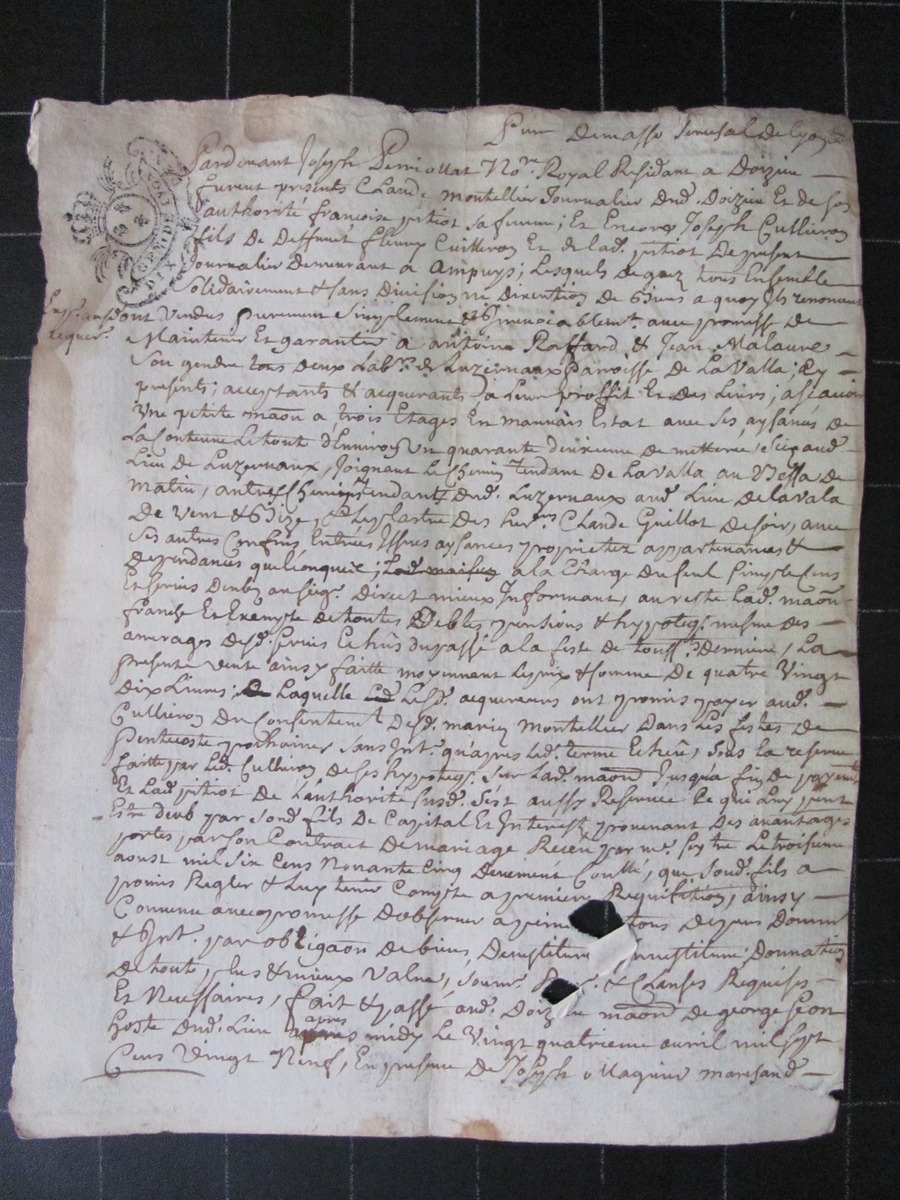 Pardevant Joseph Perriollat No.re Royal Residant a Doizieu
furent presents Claude montellier Journalier dud. Doizieu Et de son
authorité françoise pitiot sa femme; Et Encores Joseph Cullieron
fils de Deffunct fleury Cuilleron Et de lad. pitiot De present
Journalier Demeurant a Ampuys; Lesquels de gré tous Ensemble
Solidairement & sans Division ne Direction de biens a quoy ils renoncent
ont Vendus purement Simplement & avec promesse de
Maintenir Et garantir a antoine Raffard & Jean Malaure
Son gendre tous deux Lab.rs de Luzernaux Paroisse de La Valla; Icy
presents; acceptants & acquerants a Leur proffit Et des Leurs; ascavoir
Une petite maon a trois Etages En mauvais Estat avec Ses aysances de
La Contenue Le tout d'Environ Un quarante de metterée, Scize aud.
Lieu de Luzernaux, Joignant Le Chemin tendant de La Valla au Bessa de
matin, autre Chemin tendant dud. Luzernaux aud. Lieu de la vala
De Vent & bize, des her.rs Claude Guillot de soir, avec
Ses autres Confins Entrées Issues aysances proprietez appartenances &
Dependances quelconques; a la Charge du seul Simple Cens
Et servis au Seig.r Direct mieux Informant, au reste lad. maon
franche Et Exempte de toutes Debtes pensions & hypoteq. mesme des
arrerages desd. servis Echus du passé a la feste de touss.ts Derniere, La
presente vente ainsy faitte moyennant Le prix & somme de quatre Vingt
Dix Livres; Laquelle Lesd. acquereurs ont promis payer aud.
Cullieron Du Consentem.t Desd. mariez Montellier Dans Les festes de
Pentecoste prochaines sans Int. qu'apres led. terme Echeu, Sous la reserve
faitte par Led. Cullieron de ses hypoteq. Sur Lad. maon Jusqu'a fin de payem.t
Et Lad. pitiot de L'authorité susd. s'est aussy Reservée Ce qui Luy peut
Estre deub par sond. fils De Capital Et Interest provenant Des avantages
portes par son Contract de mariage Receu par m.e Le troisieme
aoust mil six Cens Nonante Cinq Deuement Conllé, que sond. fils a
promis Regler & Luy tenir Compte a premiere Requisition, ainsy
Convenu avec promesse D'observer a peine tous Depens Domm.
& Int. par obligaon de biens, Devestiture Investiture, Donnation
de toute plus & mieux Value, soum. & Clauses Requises
Et Necessaires, fait & passé aud. Doizieu maon de george Jeon
hoste Dud. Lieu apres midy Le Vingt quatrieme avril mil sept
Cens Vingt Neuf, En presence de Joseph ollagnier marchand